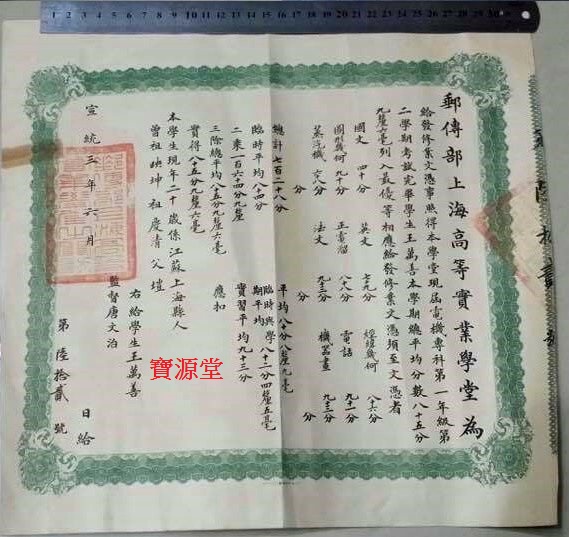 郵傳部上海高等實業學堂為
給發修業文憑事照得本學堂現屆電機專科第一年級第
二學期考試完畢學生王萬善本學期總平均分數八十五分
九釐六毫列入最優等相應給發修業文憑須至文憑者
國文 四十分 英文 七十九分 經緯幾何 八十六分
圖形幾何 九十分 正電溜 八十八分 電話 九十一分
蒸汽機 分 法文 九十三分 機器畫 九十三分
總計七百二十八分 平均八十分八釐九毫
臨時平均八十四分 臨時與學期平均 八十二分四釐五毫
二乘一百六十四分九釐 實習平均九十三分
三除總平均八十五分九釐六毫 應扣
實得八十五分九釐六毫
本學生現年二十歲係江蘇上海縣人
曾祖 映坤 祖 慶清 父 塏
右給學生王萬善
監督唐文治
宣統三年六月 日給
第陸拾貳號
寶源堂